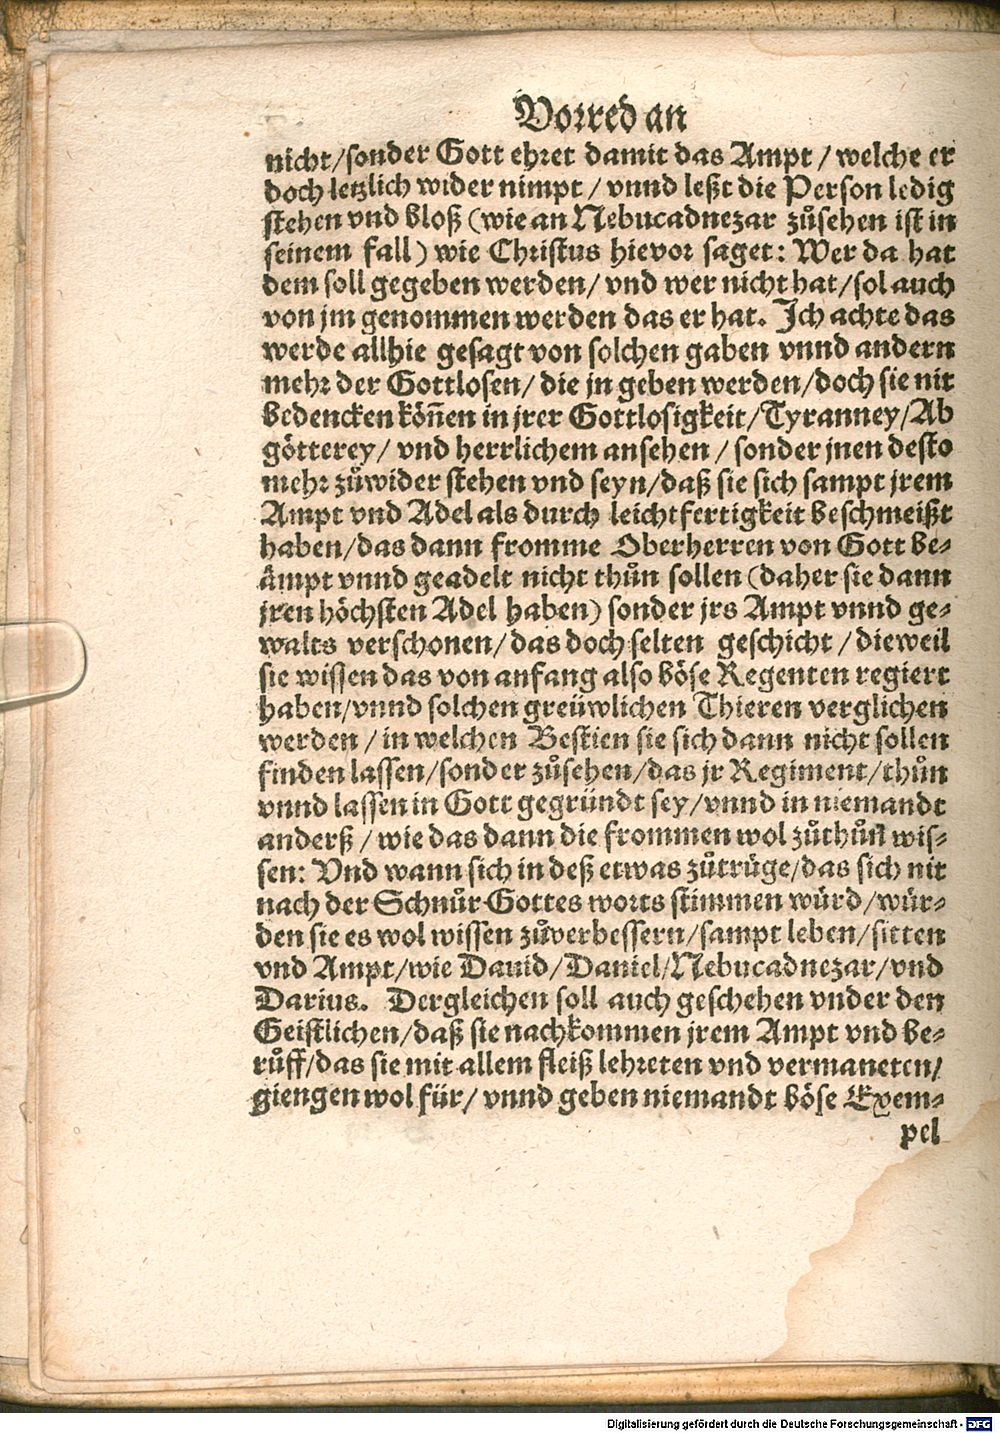 Vorred an
nicht/sonder Gott ehret damit das Ampt / welche er
doch letzlich wider nimpt / vnnd leßt die Person ledig
stehen vnd bloß (wie an Nebucadnezar zůsehen ist in
seinem fall) wie Christus hievor saget: Wer da hat
dem soll gegeben werden/ vnd wer nicht hat/sol auch
von jm genommen werden das er hat. Ich achte das
werde allhie gesagt von solchen gaben vnnd andern
mehr der Gottlosen/ die jn geben werden/doch sie nit
bedencken köñen in jrer Gottlosigkeit/Tyranney/Ab
götterey/ vnd herrlichem ansehen / sonder jnen desto
mehr zůwider stehen vnd seyn/daß sie sich sampt jrem
Ampt vnd Adel als durch leichtfertigkeit beschmeißt
haben/das dann fromme Oberherren von Gott be⸗
ämpt vnnd geadelt nicht thůn sollen (daher sie dann
jren höchsten Adel haben) sonder jrs Ampt vnnd ge⸗
walts verschonen/das doch selten geschicht / dieweil
sie wissen das von anfang also böse Regenten regiert
haben/vnnd solchen greüwlichen Thieren verglichen
werden / in welchen Bestien sie sich dann nicht sollen
finden lassen/sonder zůsehen/das jr Regiment/thůn
vnnd lassen in Gott gegründt sey/vnnd in niemandt
anderß / wie das dann die frommen wol zůthůn wis⸗
sen: Vnd wann sich in deß etwas zůtrüge/das sich nit
nach der Schnůr Gottes worts stimmen würd/wür⸗
den sie es wol wissen zůverbessern/sampt leben/sitten
vnd Ampt/wie Dauid/Daniel/Nebucadnezar/vnd
Darius. Dergleichen soll auch geschehen vnder den
Geistlichen/daß sie nachkommen jrem Ampt vnd be⸗
růff/das sie mit allem fleiß lehreten vnd vermaneten/
giengen wol für/ vnnd geben niemandt böse Exem⸗
pel
Digitalisierung gefördert durch die Deutsche Forschungsgemeinschaft - DFG